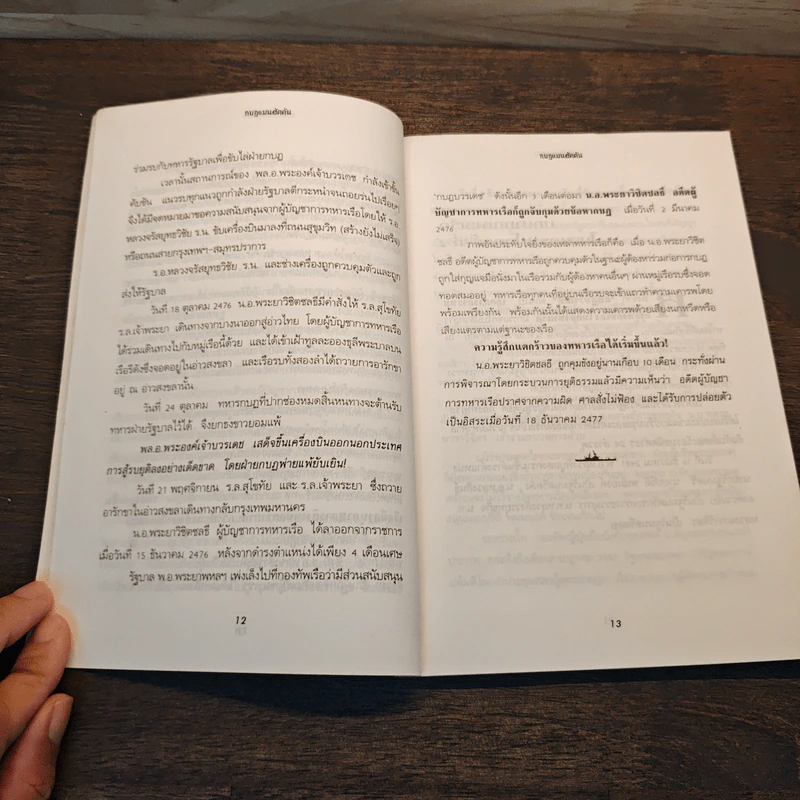 กบฏแมนฮัตตัน
ร่วมรบกับทหารรัฐบาลเพื่อขับไล่ฝ่ายกบฏ
เวลานั้นสถานการณ์ของ พล.อ.พระองค์เจ้าบวรเดช กำลังเข้าขั้น
คับขัน แนวรบทุกแนวถูกกำลังฝ่ายรัฐบาลตีกระหน่ำจนถอยร่นไปเรื่อยๆ
จึงได้มีจดหมายมาขอความสนับสนุนจากผู้บัญชาการทหารเรือโดยให้ ร.อ.
หลวงจรัสยุทธวิชัย ร.น. ขับเครื่องบินมาลงที่ถนนสุขุมวิท (สร้างยังไม่เสร็จ)
หรือถนนสายกรุงเทพฯ-สมุทรปราการ
ร.อ.หลวงจรัสยุทธวิชัย ร.น. และช่างเครื่องถูกควบคุมตัวและถูก
ส่งให้รัฐบาล
วันที่ 18 ตุลาคม 2476 น.อ.พระยาวิชิตชลธีมีคำสั่งให้ ร.ล.สุโขทัย
ร.ล.เจ้าพระยา เดินทางจากบางนาออกสู่อ่าวไทย โดยผู้บัญชาการทหารเรือ
ได้ร่วมเดินทางไปกับหมู่เรือนี้ด้วย และได้เข้าเฝ้าทูลละอองธุลีพระบาทบน
เรือรีดังซึ่งจอดอยู่ในอ่าวสงขลา และเรือรบทั้งสองลำได้ถวายการอารักขา
อยู่ ณ อ่าวสงขลานั้น
วันที่ 24 ตุลาคม ทหารกบฏที่ปากช่องหมดสิ้นหนทางจะต้านรับ
ทหารฝ่ายรัฐบาลไว้ได้ จึงยกธงขาวยอมแพ้
พล.อ.พระองค์เจ้าบวรเดช เสด็จขึ้นเครื่องบินออกนอกประเทศ
การสู้รบยุติลงอย่างเด็ดขาด โดยฝ่ายกบฏพ่ายแพ้ยับเยิน!
วันที่ 21 พฤศจิกายน ร.ล.สุโขทัย และ ร.ล.เจ้าพระยา ซึ่งถวาย
อารักขาในอ่าวสงขลาเดินทางกลับกรุงเทพมหานคร
น.อ.พระยาวิชิตชลธี ผู้บัญชาการทหารเรือ ได้ลาออกจากราชการ
เมื่อวันที่ 15 ธันวาคม 2476 หลังจากดำรงตำแหน่งได้เพียง 4 เดือนเศษ
รัฐบาล พ.อ.พระยาพหลฯ เพ่งเล็งไปที่กองทัพเรือว่ามีส่วนสนับสนุน
12
กบฏแมนฮัตตัน
'กบฏบวรเดช' ดังนั้นอีก 3 เดือนต่อมา น.อ.พระยาวิชิตชลธี อดีตผู้
บัญชาการทหารเรือก็ถูกจับกุมด้วยข้อหากบฏ เมื่อวันที่ 2 มีนาคม
2476
ภาพอันประทับใจยิ่งของเหล่าทหารเรือก็คือ เมื่อ น.อ.พระยาวิชิต
ชลธี อดีตผู้บัญชาการทหารเรือถูกควบคุมตัวในฐานะผู้ต้องหาร่วมก่อการกบฏ
ถูกใส่กุญแจมือนั่งมาในเรือร่วมกับผู้ต้องหาคนอื่นๆ ผ่านหมู่เรือรบซึ่งจอด
ทอดสมออยู่ ทหารเรือทุกคนที่อยู่บนเรือรบจะเข้าแถวทำความเคารพโดย
พร้อมเพรียงกัน พร้อมกันนั้นได้แสดงความเคารพด้วยเสียงนกหวีดหรือ
เสียงแตรตามแต่ฐานะของเรือ
ความรู้สึกแตกร้าวของทหารเรือได้เริ่มขึ้นแล้ว!
น.อ.พระยาวิชิตชลธี ถูกคุมขังอยู่นานเกือบ 10 เดือน กระทั่งผ่าน
การพิจารณาโดยกระบวนการยุติธรรมแล้วมีความเห็นว่า อดีตผู้บัญชา
การทหารเรือปราศจากความผิด ศาลสั่งไม่ฟ้อง และได้รับการปล่อยตัว
เป็นอิสระเมื่อวันที่ 18 ธันวาคม 2477
13